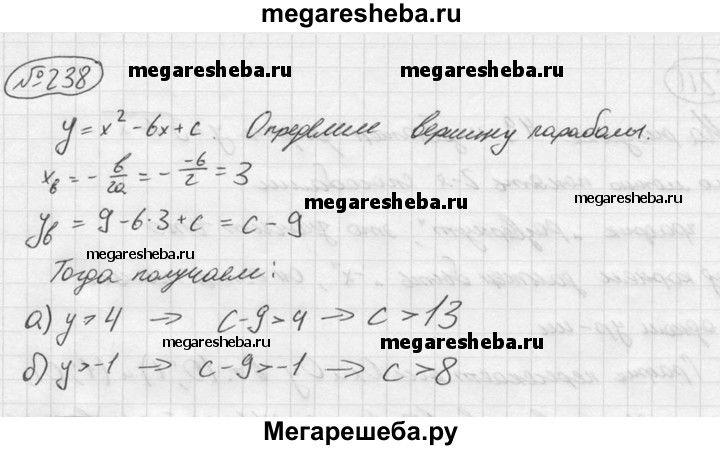 megaresheba.ru
№238 megaresheba.ru megaresheba.ru
y = x² - 6x + c. Определим вершину параболы.
xв = - в/2a = - -6/2 = 3
megaresheba.ru
yв = 9 - 6·3 + c = c - 9
megaresheba.ru
Тогда получаем:
а) y > 4 → c - 9 > 4 → c > 13
megaresheba.ru megaresheba.ru
б) y > -1 → c - 9 > -1 → c > 8
Мегарешеба.ру